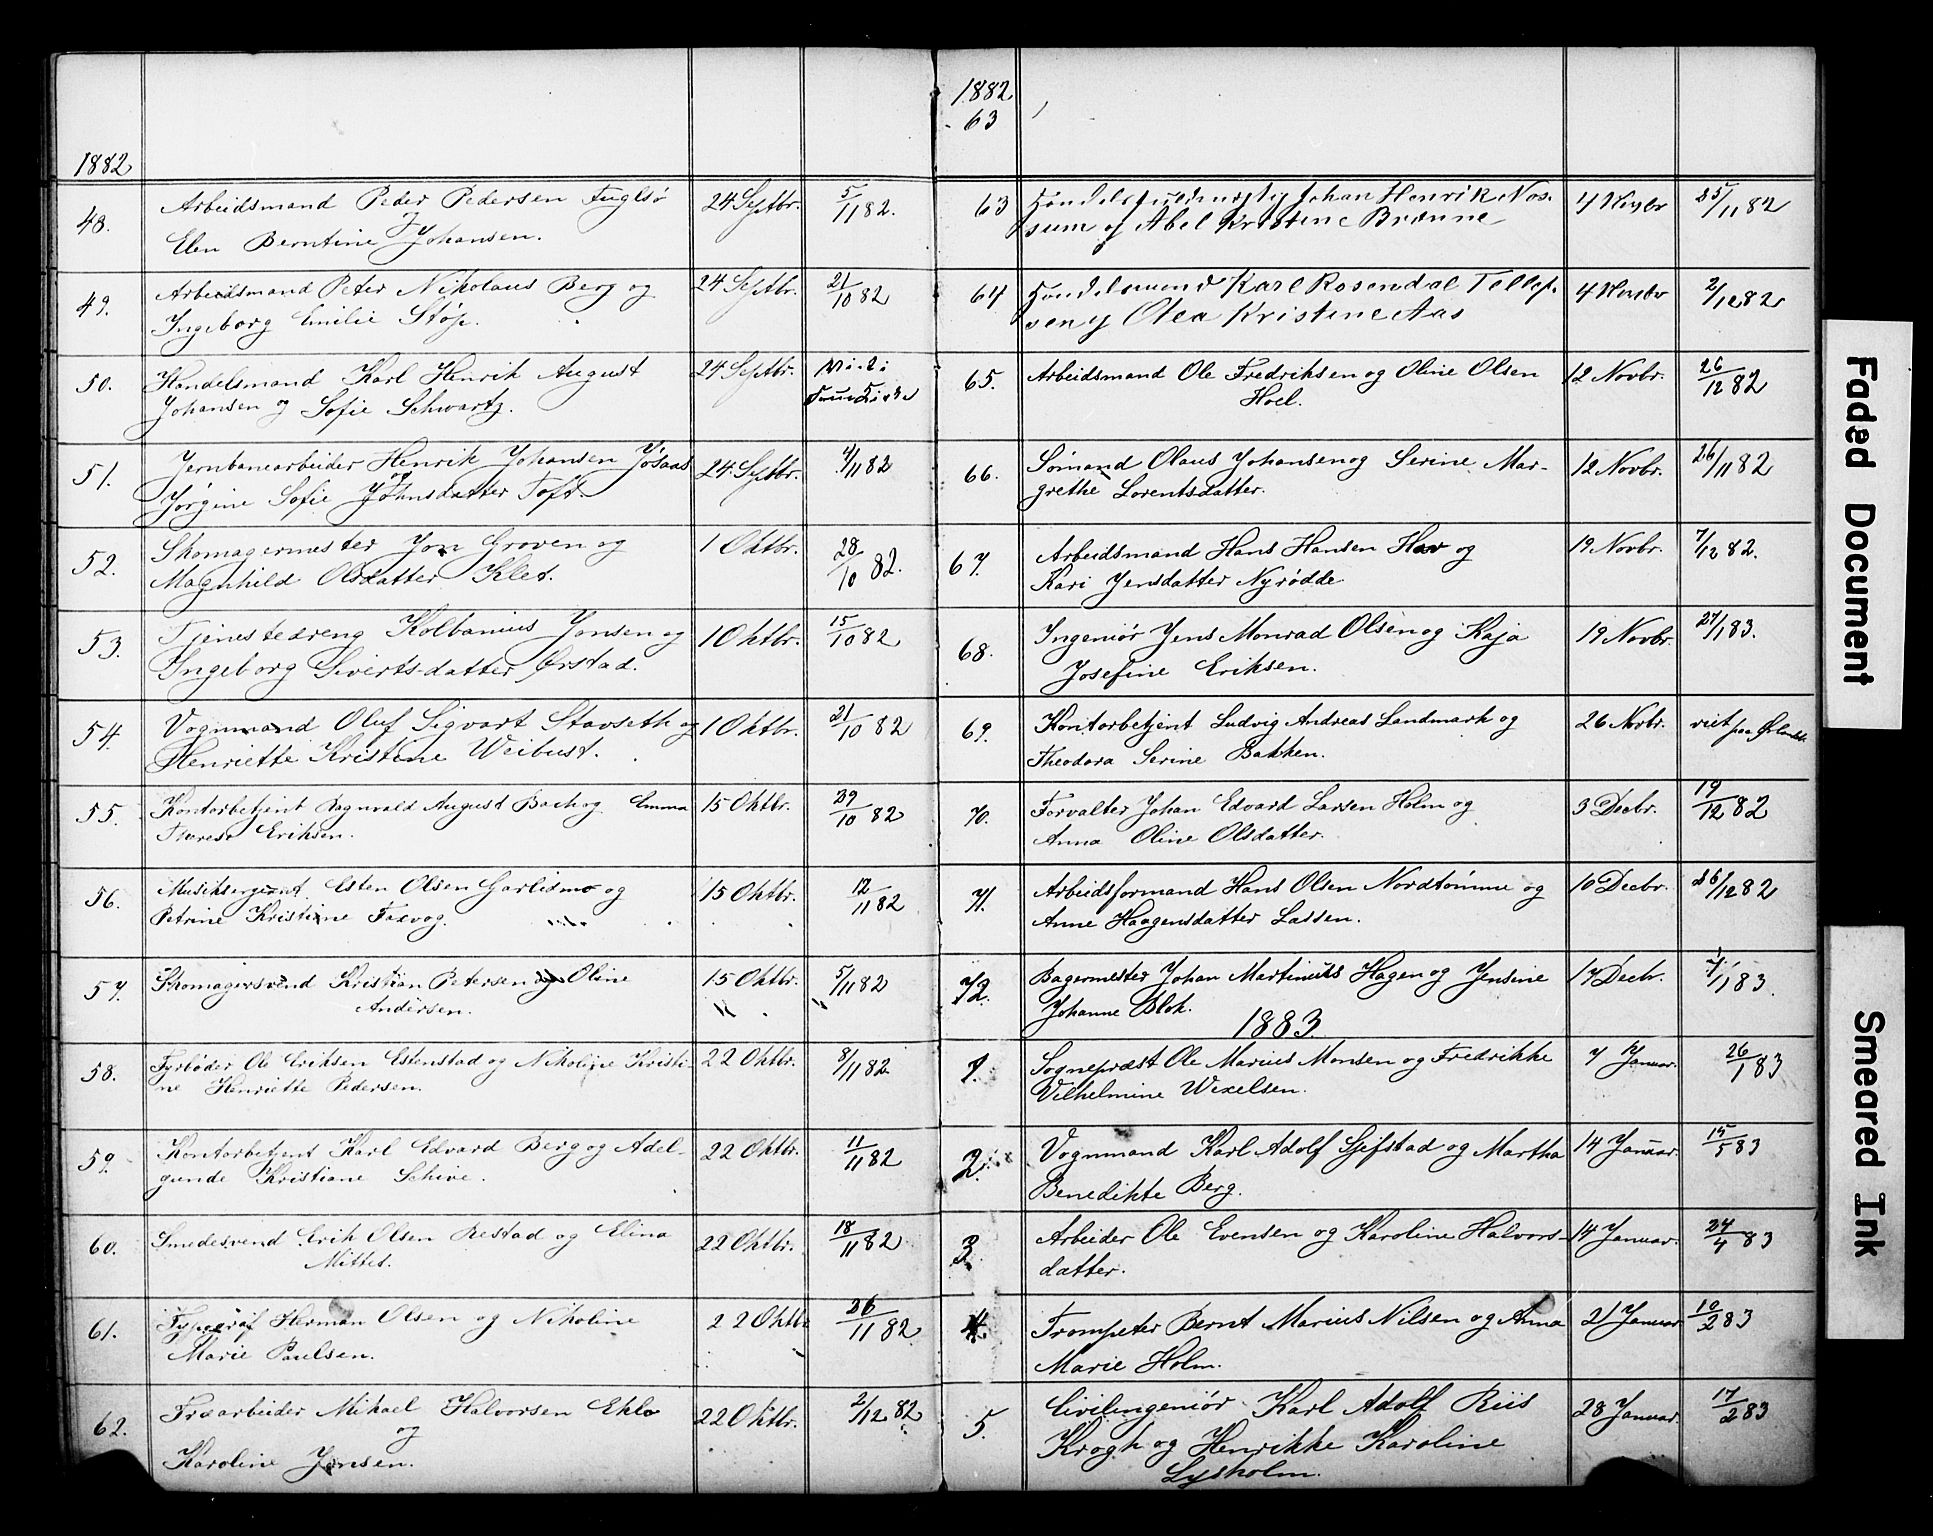 1882
48. Arbeidsmand Peder Pedersen Fuglsø 24 Septbr. 5/11 82.
Elen Berntine Johansen.
49. Arbeidsmand Peter Nikolaus Berg og 24 Septbr. 21/10 82
Ingeborg Emilie Støp.
50. Handelsmand Karl Henrik August 24 Septbr.
Johansen og Sofie Schwartz.
51. Jernbanearbeider Henrik Johansen Jøsaas 24. Septbr. 4/11 82
og
Jørgine Sofie Johnsdatter Toft.
52. Skomagermester Jon Groven og 1 Oktbr. 28/10 82.
Magnhild Olsdatter Klet.
53. Tjenestedreng Kolbanius Jonsen og 1 Oktbr. 15/10 82
Ingeborg Sivertsdatter Ørstad.
54. Vognmand Oluf Sigvart Stavseth og 1 Oktbr. 21/10 82
Henriette Kristine Weibust.
55. Kontorbetjent Ragnvald August Bach og Emma 15 Oktbr. 29/10 82
Therese Eriksen.
56. Musiksergeant Esten Olsen Garlismo og 15 Oktbr. 12/11 82
Petrine Kristine Faxvog.
57. Skomagersvend Kristian Petersen og Oline 15 Oktbr. 5/11 82
Andersen.
58. Fyrbøder Ole Eriksen Estenstad og Nikoline Kristi- 22 Oktbr. 8/11 82
ne Henriette Pedersen.
59. Kontorbetjent Karl Edvard Berg og Adel- 22 Oktbr. 11/11 82
gunde Kristiane Schive.
60. Smedesvend Erik Olsen Restad og Elina 22 Oktbr. 18/11 82
Mittet.
61. Typograf Herman Olsen og Nikoline 22 Oktbr 26/11 82
Marie Paulsen.
62. Træarbeider Mikael Halvorsen Ekle 22 Oktbr. 2/12 82
og
Karoline Jensen.
1882
63
63 Johan Henrik Nos- 4 Novbr 25/11 82
sum og Abel Kristine Brønne
64 Handelsmand Karl Rosendal Tellef- 4 Novbr 2/12 82
sen og Olea Kristine Aas
65. Arbeidsmand Ole Fredriksen og Oline Olsen 12 Novbr. 26/12 82
Hoel.
66. Sømand Olaus Johansen og Serine Mar- 12 Novbr. 26/11 82
grethe Lorentsdatter.
67. Arbeidsmand Hans Hansen Hav og 19 Novbr. 7/12 82.
Kari Jensdatter Nyrødde.
68. Ingeniør Jens Monrad Olsen og Kaja 19 Novbr. 27/1 83.
Josefine Eriksen.
69. Kontorbetjent Ludvig Andreas Landmark og 26 Novbr. viet paa Ørlandet
Theodora Serine Bakken.
70. Forvalter Johan Edvard Larsen Holm og 3 Decbr. 19/12 82
Anna Oline Olsdatter.
71. Arbeidsformand Hans Olsen Nordtømme og 10 Decbr. 26/12 82
Anne Haagensdatter Lassen.
72. Bagermester Johan Martinius Hagen og Jensine 17 Decbr. 7/1 83
Johanne Blok.
1883.
1. Sogneprest Ole Marius Monsen og Fredrikke 7 Januar. 26/1 83
Vilhelmine Wexelsen.
2. Vognmand Karl Adolf Sjefstad og Martha 14 Januar. 15/5 83
Benedikte Berg.
3. Arbeider Ole Evensen og Karoline Halvors- 14 Januar. 24/4 83
datter.
4. Trompeter Bernt Marius Nilsen og Anna 21 Januar 10/2 83
Marie Holm.
5. Civilingeniør Karl Adolf Riis 28 Januar 17/2 83
Krogh og Henrikke Karoline
Lysholm.
Faded Document
Smeared Ink